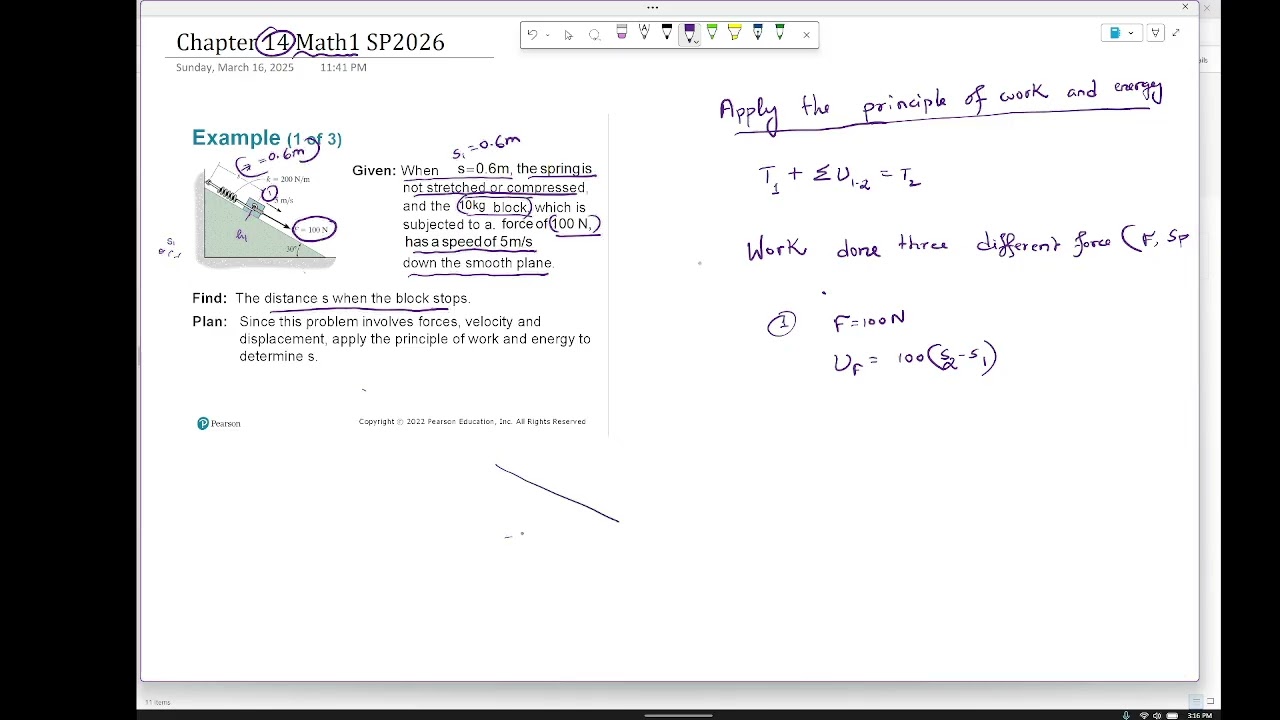 Chapter 14 Math1 SP2026
Sunday, March 16, 2025 11:41 PM
Example (1 of 3)
= 0.6m
k = 200 N/m
1
5 m/s
F = 100 N
30°
h1
S1
S1 = 0.6m
Given: When s=0.6m, the spring is
not stretched or compressed,
and the 10kg block, which is
subjected to a. force of 100 N,
has a speed of 5m/s
down the smooth plane.
Find: The distance s when the block stops.
Plan: Since this problem involves forces, velocity and
displacement, apply the principle of work and energy to
determine s.
Pearson
Copyright © 2022 Pearson Education, Inc. All Rights Reserved
Apply the principle of work and energy
T1 + Σ U1-2 = T2
Work done three different force (F, Sp
1 F = 100N
UF = 100(S2 - S1)
11 items
3:16 PM